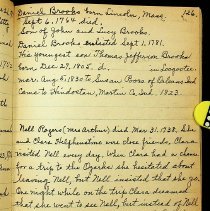 Daniel Brooks born Lincoln, Mass. 126.
Sept 6, 1764 died.
Son of John and Lucy Brooks.
Daniel Brooks enlisted Sept 1, 1781.
His youngest son Thomas Jefferson Brooks
born Dec 27, 1805. d. in Loogootee
mar. Aug 5, 1830 to Susan Poor of Orleans Ind
Came to Hindostan, Martin Co. Ind. 1823.
Nell Rogers (Mrs Arthur) died Mar 31, 1938. She
and Clara were close friends, Clara
visited Nell every day. When Clara had a chance
for a trip to the Ozarks she hesitated about
leaving Nell, but Nell insisted that she go.
One night while on the trip Clara dreamed
that she went to see Nell, but instead of Nell